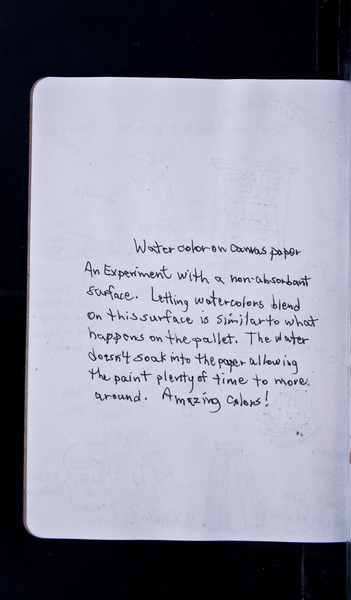 Watercolor on Canvas paper
An Experiment with a non-absorbant
surface. Letting watercolors blend
on this surface is similar to what
happens on the pallet. The water
doesn't soak into the paper allowing
the paint plenty of time to more
around. Amazing Colors!